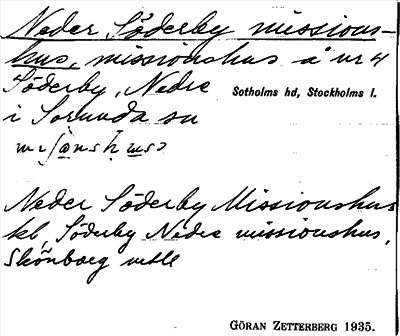 Neder Söderby missions-
hus, missionshus å nr 4
Söderby, Nedre Sotholms hd, Stockholms l.
i Sorunda sn
Neder Söderby Missionshus
kl, Söderby Nedre missionshus,
GÖRAN ZETTERBERG 1935.